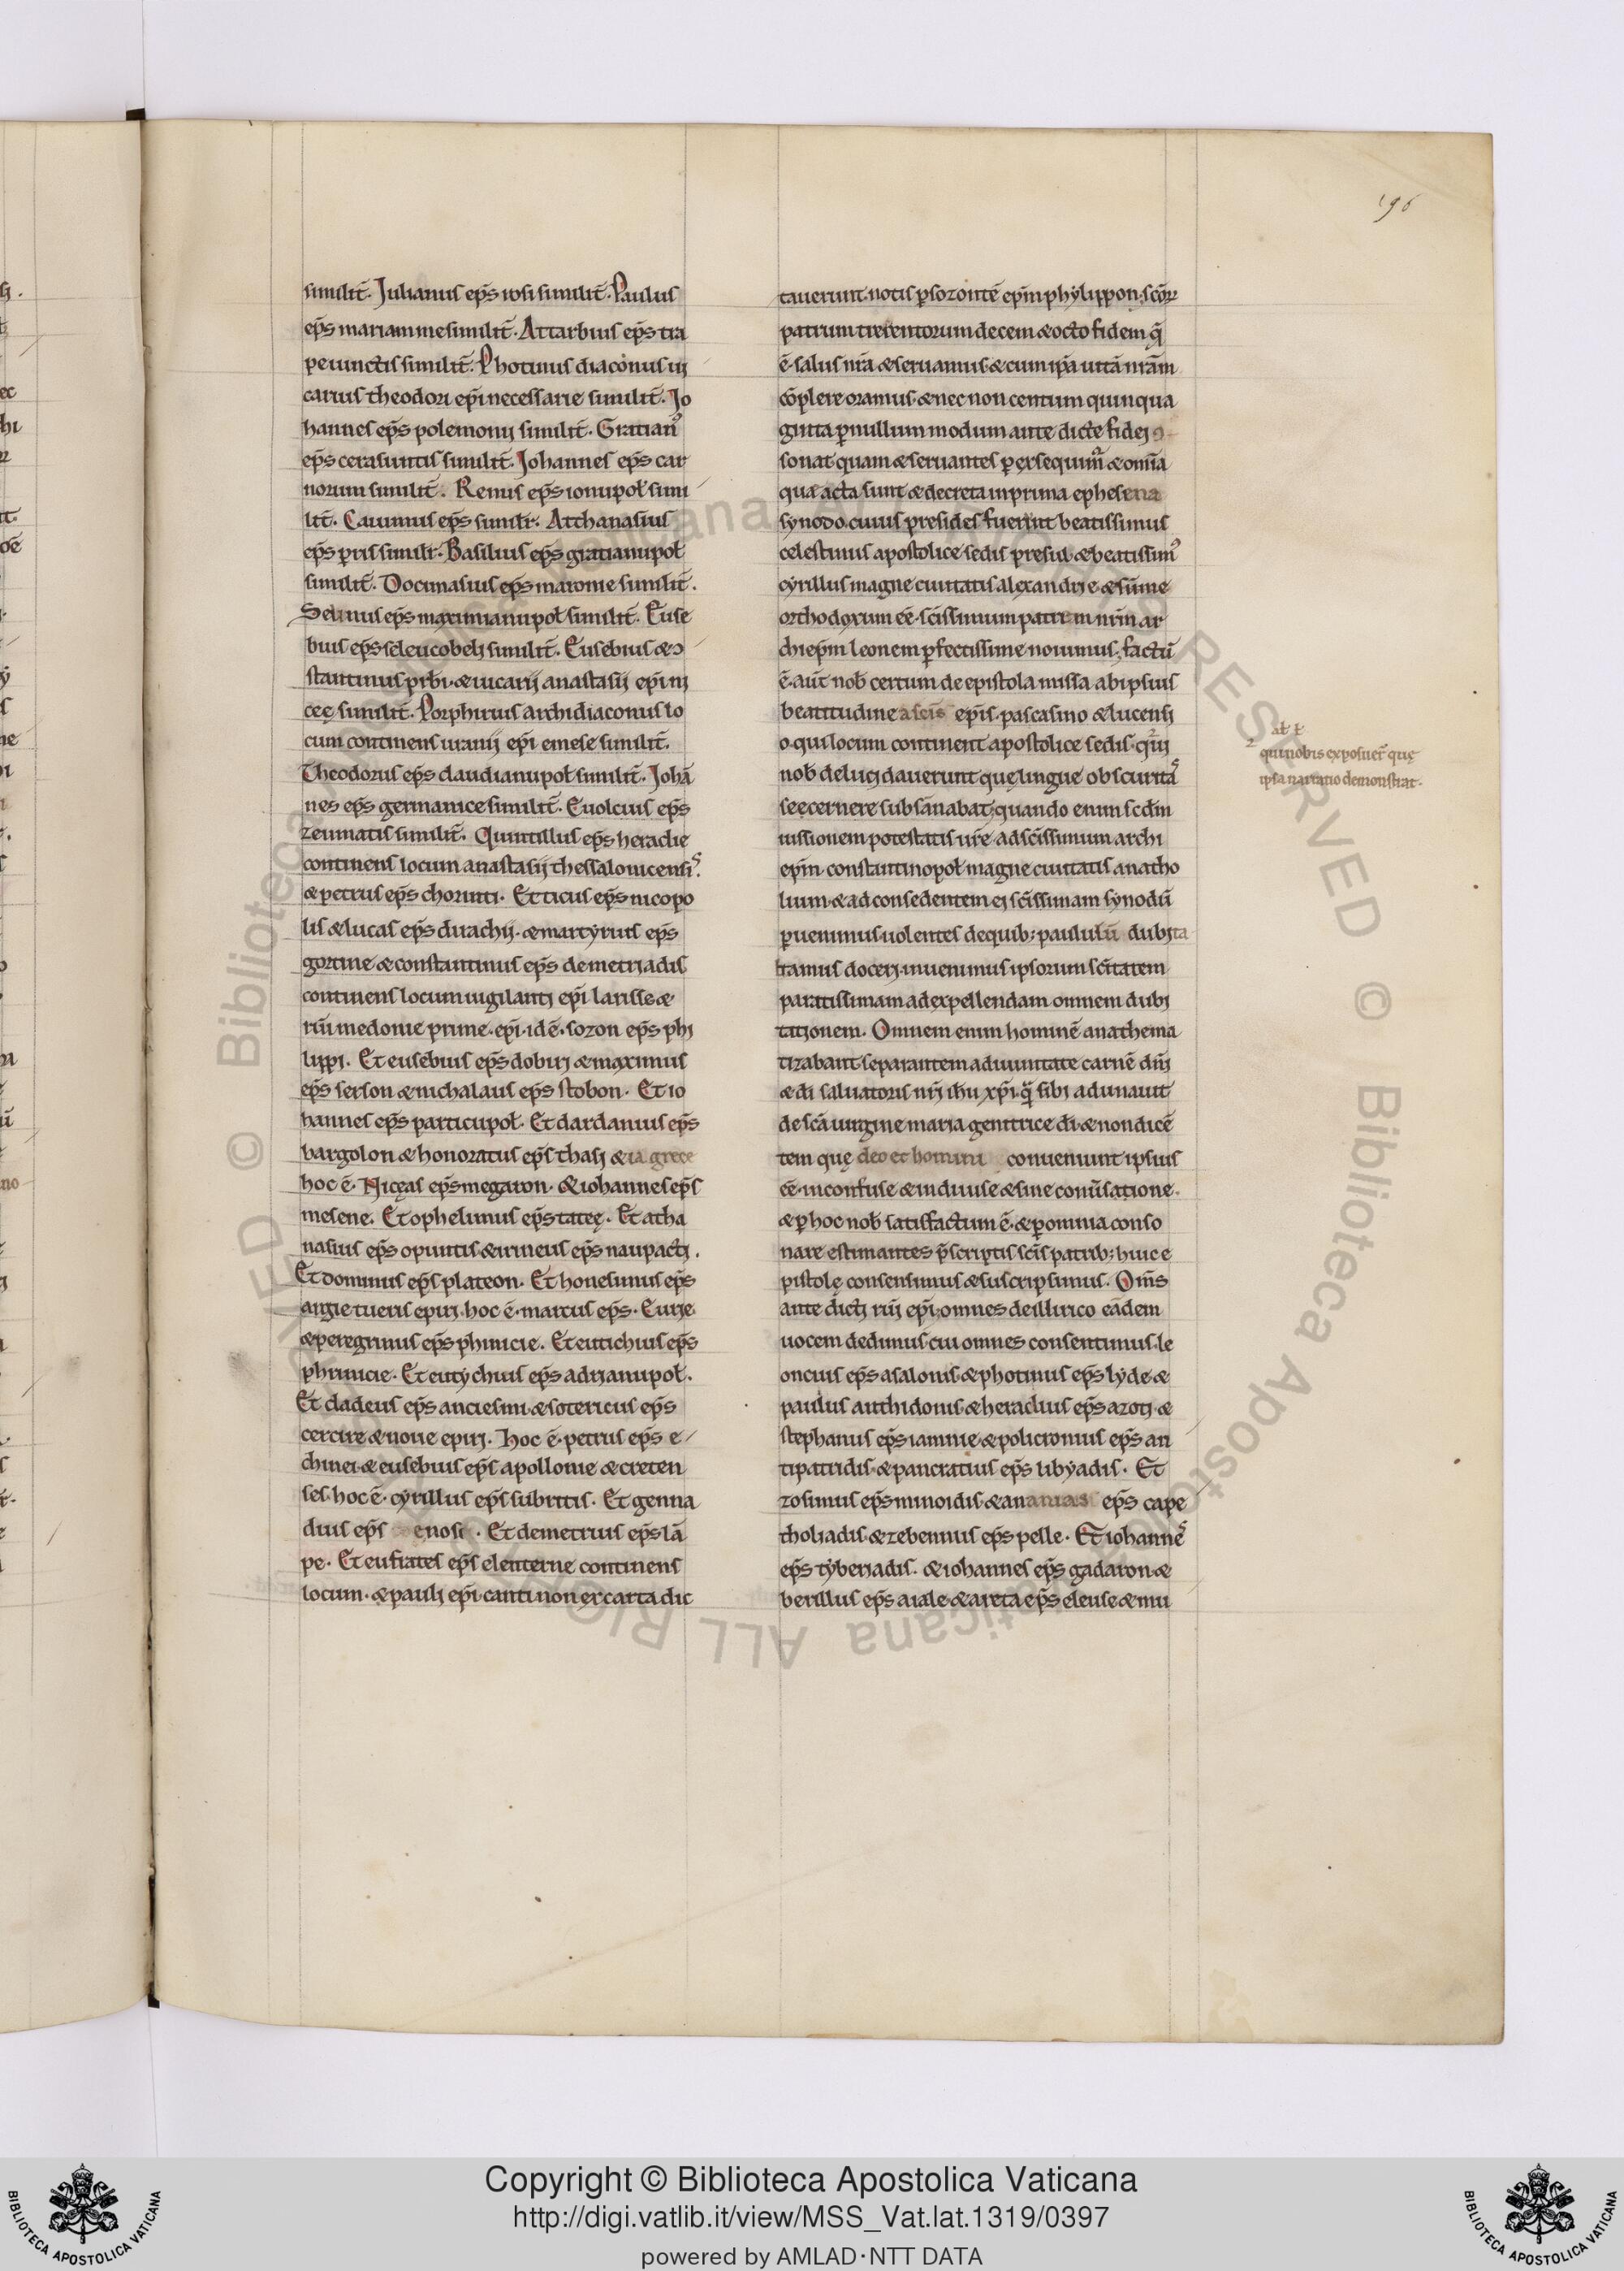 196
similit̄. Julianus ep̄s iosi similit̄. Paulus
ep̄s mariamme similit̄. Attarbius ep̄s tra
peiunctis similit̄. Photinus diaconus ui
carius theodori ep̄i necessarie similit̄. Jo
hannes ep̄s polemonij similit̄. Gratian᾽
ep̄s cerasuntis similit̄. Johannes ep̄s car
norum similit̄. Remus ep̄s ionupoł simi
lit̄. Cauimus ep̄s similr̄. Atthanasius
ep̄s pris similr̄. Basilius ep̄s gratianupoł
similit̄. Docimasius ep̄s maronie similit̄.
Seuinus ep̄s maximianupoł similit̄. Euse
bius ep̄s seleucobelj similit̄. Eusebius & ꝯ
stantinus pr̄bi & uicarij anastasij ep̄i ni
ceę similit̄. Porphirius archidiaconus lo
cum continens uranij ep̄i emese similit̄.
Theodorus ep̄s claudianupoł similit̄. Johā
nes ep̄s germanice similit̄. Euolcius ep̄s
zeumatis similit̄. Quintillus ep̄s heraclie
continens locum anastasij thessalonicensis.
& petrus ep̄s chorinti. Et ticus ep̄s nicopo
lis & lucas ep̄s duachij. & martyrius ep̄s
gortine & constantinus ep̄s demetriadis
continens locum uigilantj ep̄i larisse &
riū medonie prime. ep̄i. idē. sozon ep̄s phi
lippi. Et eusebius ep̄s dobirj & maximus
ep̄s serson & nichalaus ep̄s stobon. Et io
hannes ep̄s particupoł. Et dardanius ep̄s
bargolon & honoratus ep̄s thasj & ia grece
hoc ē. Niceas ep̄s megaron. & iohannes ep̄s
mesene. Et ophelimus ep̄s tateę. Et atha
nasius ep̄s opuntis & irineus ep̄s naupactj.
Et dominus ep̄s plateon. Et honesimus ep̄s
argie tueris epirj. hoc ē. marcus ep̄s. Eurie
& peregrinus ep̄s phinicie. Et eutichius ep̄s
phrinicie. Et eutychius ep̄s adrianupoł.
Et dadeus ep̄s anciesmi & sotericus ep̄s
cercire & noue epirj. Hoc ē. petrus ep̄s e
chinei & eusebius ep̄s apollonie & creten
ses. hoc ē. cyrillus ep̄s subritis. Et genna
dius ep̄s enosi. Et demetrius ep̄s lā
pe. Et eufrates ep̄s elenterne continens
locum. & paulj ep̄i. cantinon ex carta dic
tauerunt. notis p sozontē ep̄m phylippon. scōꝝ
patrum trecentorum decem & octo fidem. q̄
ē. salus nr̄a & seruamus. & cum ip̄a uitā nr̄am
cōplere oramus. & nec non centum quinqua
ginta p nullum modum ante dicte fidej ꝯ
sonat quam & seruantes p exsequimr̄ & om̄ia
qua acta sunt & decreta in prima ephesena
synodo. cuius presides fuerunt beatissimus
celestinus apostolice sedis presul. & beatissim᾽
cyrillus magne ciuitatis alexandrie & sūme
orthodoxum eē. sc̄issimum patrem nr̄m ar
chiep̄m leonem pfectissime nouimus. factū
ē. aut̄ nob̄ certum de epistola missa ab ipsius
beatitudine a scīs ep̄is. pascasino & lucensj
o. qui locum continent apostolice sedis. qr̄ij
nob̄ delucidauerunt quę lingue obscurita
se ecernere subsānabat. quando enim scd̄m
iussionem potestatis ur̄e ad sc̄issimum archi
ep̄m constantinopoł magne ciuitatis anatho
lium & ad consedentem ej sc̄issimam synodū
puenimus. uolentes de quib; paululū dubita
tamus docerj. inuenimus ipsorum sc̄itatem
paratissimam ad expellendam omnem dubi
tationem. Omnem enim hominē anathema
tizabant separantem a diuinitate carnē dn̄i
& dī saluatoris nr̄j ihu xp̄i. q̄ sibj adunauit
de scā uirgine maria. genitrice dī. & non dicē
tem quę deo et homini conueniunt ipsius
eē. inconfuse & indiuise & sine conūsatione.
& p hoc nob̄ satisfactum ē. & p omnia conso
nare estimantes p̄scriptis scīs patrib; huic e
pistolę consensimus & suscripsimus. Om̄s
ante dictj riū ep̄i; omnes de illirico eādem
uocem dedimus. cui omnes consentimus. le
oncius ep̄s asalonis. & photinus ep̄s lyde &
paulus anthidonis. & heraclius ep̄s azotj. &
stephanus ep̄s iamnie & policronius ep̄s an
tipatridis. & pancratius ep̄s libyadis. Et
zosimus ep̄s minoidis. & ananias ep̄s cape
tholiadis. & zebennus ep̄s pelle. Et iohannes
ep̄s tyberiadis. & iohannes ep̄s gadaron &
berillus ep̄s aiale. & areta ep̄s eleuse & mu
qui nobis exposuer̄ que
ipsa narratio demonstrat.
Copyright © Biblioteca Apostolica Vaticana
http://digi.vatlib.it/view/MSS_Vat.lat.1319/0397
powered by AMLAD·NTT DATA
BIBLIOTECA APOSTOLICA VATICANA
BIBLIOTECA APOSTOLICA VATICANA